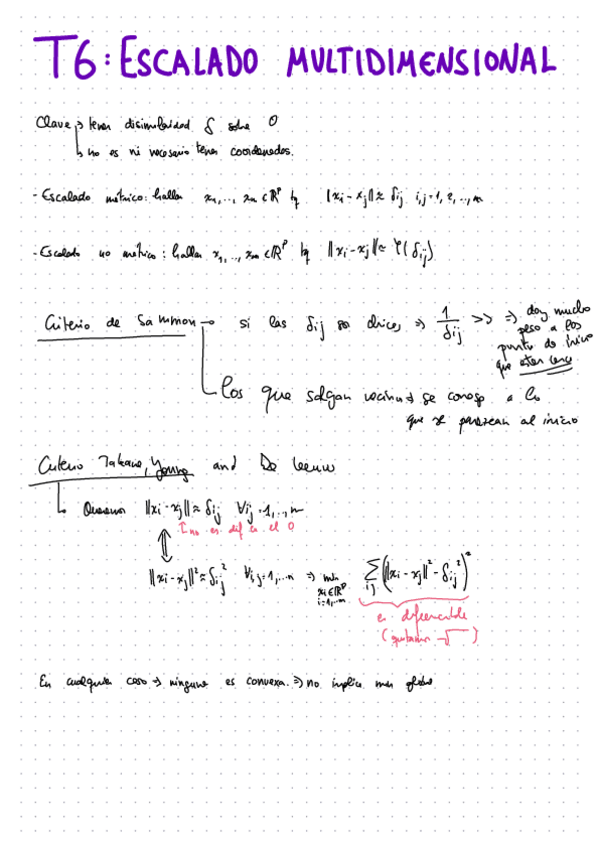 T6: ESCALADO MULTIDIMENSIONAL
Clave → tener disimilaridad δ sobre O
↳ no es ni necesario tener coordenadas.
- Escalado métrico: hallar x₁,..., xₙ ∈ ℝᵖ tq ‖xᵢ - xⱼ‖ ≈ δᵢⱼ i,j = 1, 2, .., n
- Escalado no métrico: hallar x₁,..., xₙ ∈ ℝᵖ tq ‖xᵢ - xⱼ‖ ≈ φ(δᵢⱼ)
Criterio de Sammon → si las δᵢⱼ son chicas ⇒ 1/δᵢⱼ >> ⇒ doy mucho
peso a los
puntos de inicio
que están cerca
Los que salgan vecinos se corresp. a los
que se parezcan al inicio
Criterio Takane, Young and De Leeuw
↳ Queremos ‖xᵢ - xⱼ‖ ≈ δᵢⱼ ∀i,j = 1,..., n
↑ no es dif en el 0
⇕
‖xᵢ - xⱼ‖² ≈ δᵢⱼ² ∀i,j = 1,...n ⇒ min xᵢ∈ℝᵖ i=1,..n ∑ᵢⱼ (‖xᵢ - xⱼ‖² - δᵢⱼ²)²
es diferenciable
(quitamos √)
En cualquier caso → ninguna es convexa. ⇒ no implica min global